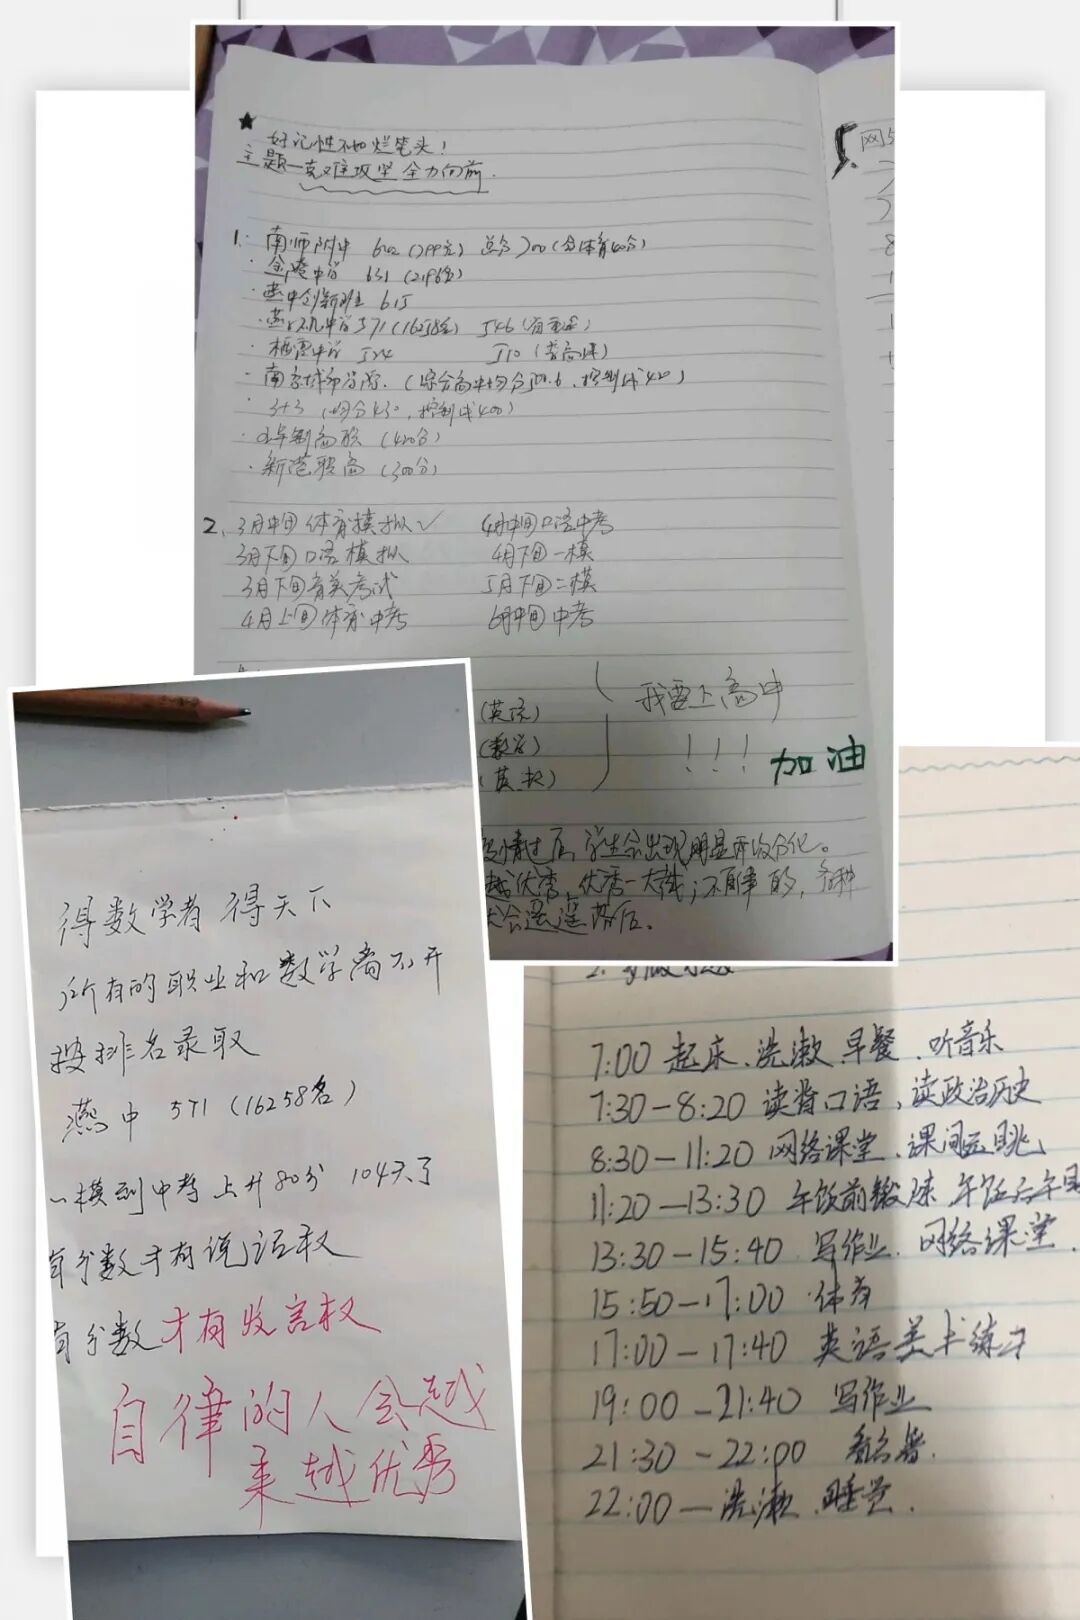 ★
好记性不如烂笔头!
主题—克难攻坚 全力向前.
1. 南师附中 (299名) 总分700(含体育40分)
·金陵中学 631 (2196名)
·燕中创新班 615
·燕子矶中学571(16258名) 546(省重点)
·栖霞中学 524 510 (普高线)
·南京城市学院.(综合高中均分500.6,控制线420)
·3+3 (均分430,控制线400)
·五年制高职 (420分)
·新港职高 (300分)
2. 3月中旬体育模拟✓ 4月中旬口语中考
3月下旬口语模拟 4月下旬一模
3月下旬有关考试 5月下旬二模
4月上旬体育中考 6月中旬中考
(英语)
(数学)
我要上高中
!!! 加油
情过后,学生会出现明显两极分化。
越优秀,优秀一大截;不自律的,各种
会遥遥落后。
网
得数学者 得天下
所有的职业和数学离不开
按排名录取
燕中 571 (16258名)
一模到中考上升80分 104天了
有分数才有说话权
有分数才有发言权
自律的人会越
来越优秀
7:00 起床、洗漱、早餐、听音乐
7:30-8:20 读背口语,读政治历史
8:30-11:20 网络课堂、课间远眺
11:20-13:30 午饭前锻炼 午饭后午
13:30-15:40 写作业、网络课堂.
15:50-17:00 体育
17:00-17:40 英语美卡练习
19:00-21:40 写作业
21:30-22:00 看名著.
22:00— 洗漱、睡觉.